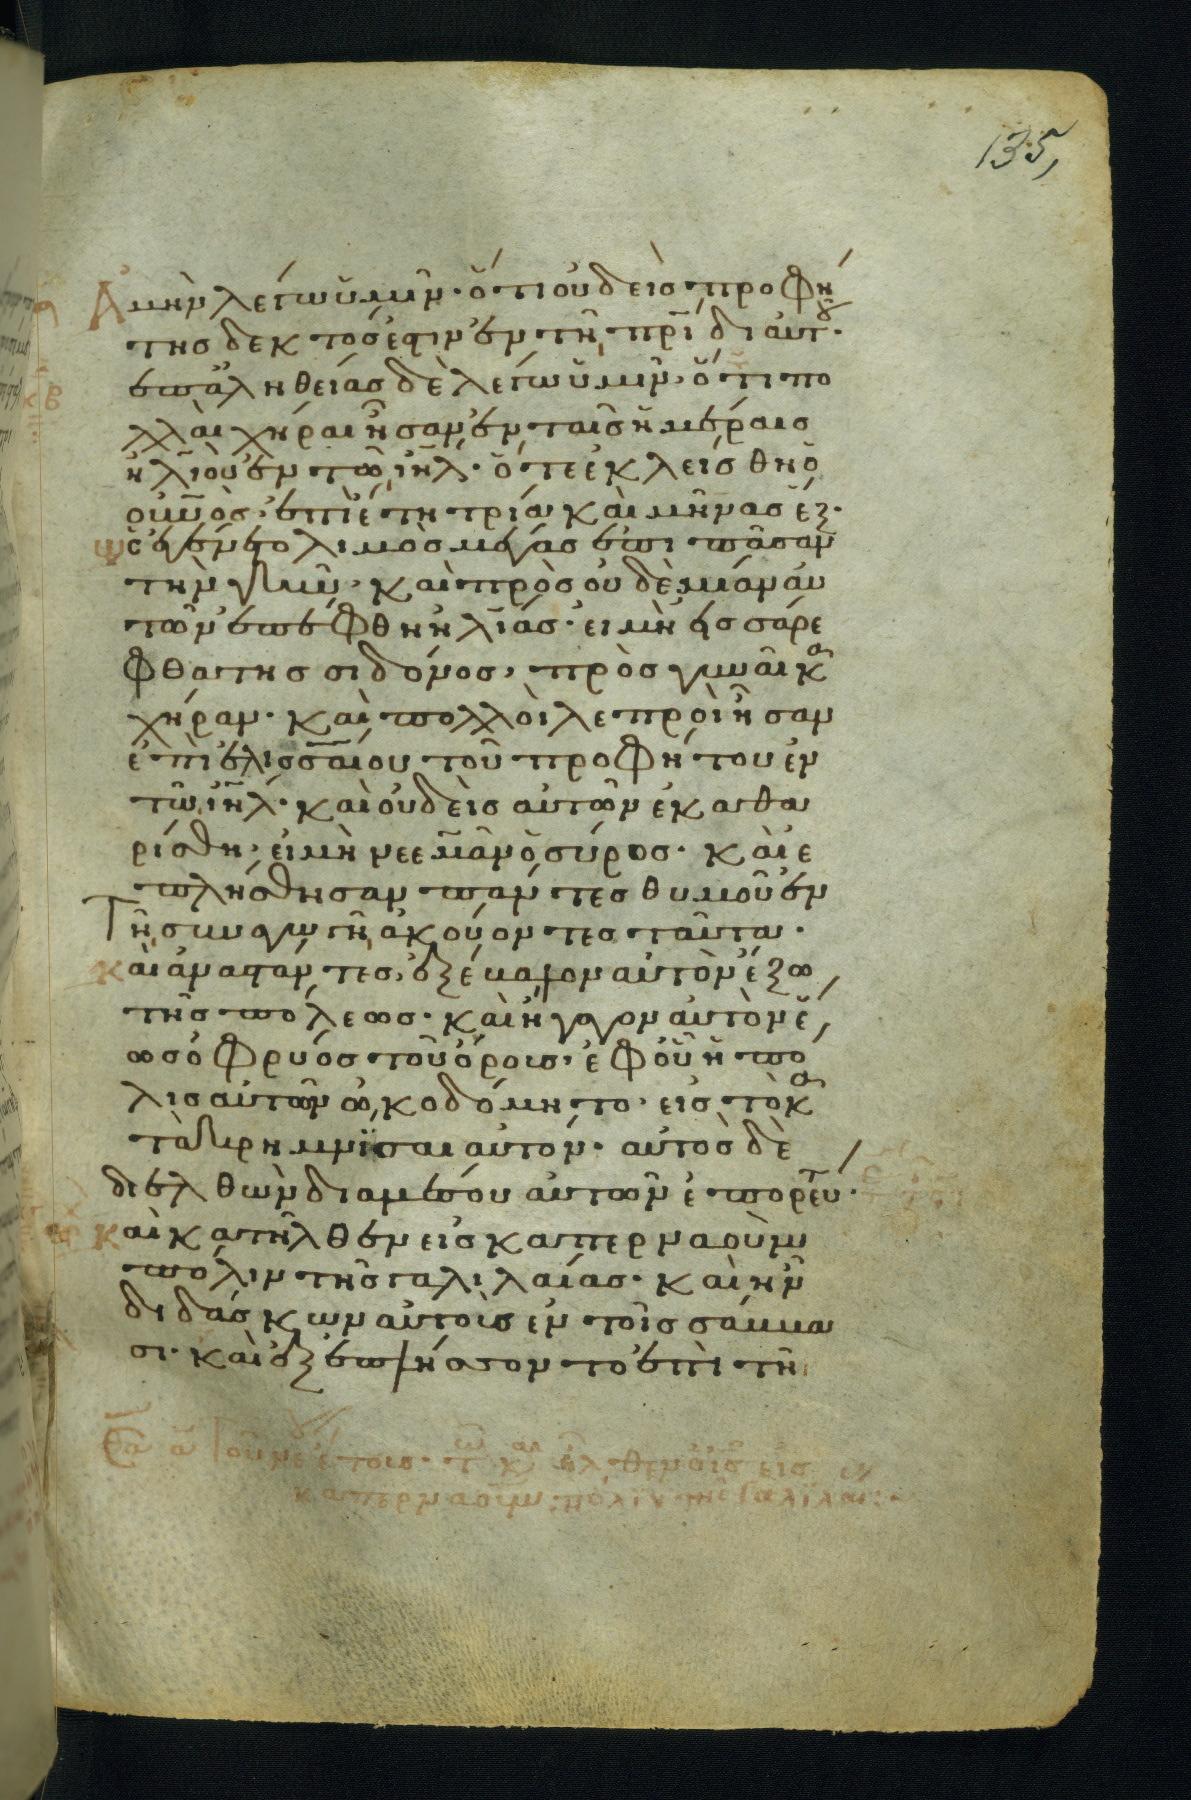 135,
Ἀμὴν λέγω ὑμῖν· ὅτι οὐδεὶς προφή
της δεκτός ἐστιν ἐν τῇ πρ̅ι̅δι αὐτοῦ·
ἐπ' ἀληθείας δὲ λέγω ὑμῖν· ὅτι πο
λλαὶ χῆραι ἦσαν ἐν ταῖς ἡμέραις
ἠλιοὺ ἐν τῷ ι̅η̅λ̅· ὅτε ἐκλείσθη ὁ
ου̅ν̅ο̅ς· ἐπὶ ἔτη τρία καὶ μῆνας ἕξ·
ὡς ἐγένετο λιμὸς μέγας ἐπὶ πᾶσαν
τὴν γῆν· καὶ πρὸς οὐδεμίαν αὐ
τῶν ἐπέμφθη ἠλίας· εἰ μὴ εἰς σάρε
φθα τῆς σιδόνος, πρὸς γυναῖκα
χήραν· καὶ πολλοὶ λεπροὶ ἦσαν
ἐπὶ ἐλισσαίου τοῦ προφήτου ἐν
τῷ ι̅η̅λ̅· καὶ οὐδεὶς αὐτῶν ἐκαθα
ρίσθη· εἰ μὴ νεεμὰν ὁ σύρος· καὶ ἐ
πλήσθησαν πάντες θυμοῦ ἐν
τῇ συναγωγῇ ἀκούοντες ταῦτα·
καὶ ἀναστάντες, ἐξέβαλον αὐτὸν ἔξω
τῆς πόλεως· καὶ ἤγαγον αὐτὸν ἕ
ως ὀφρύος τοῦ ὄρους· ἐφ' οὗ ἡ πό
λις αὐτῶν ᾠκοδόμητο· εἰς τὸ κα
τακρημνίσαι αὐτόν· αὐτὸς δὲ
διελθὼν διὰ μέσου αὐτῶν ἐπορεύ·
καὶ κατῆλθεν εἰς καπερναοὺμ
πόλιν τῆς γαλιλαίας· καὶ ἦν
διδάσκων αὐτοὺς ἐν τοῖς σάββα
σι· καὶ ἐξεπλήσσοντο ἐπὶ τῇ
καπερναοὺμ πόλιν τῆς γαλιλαι: